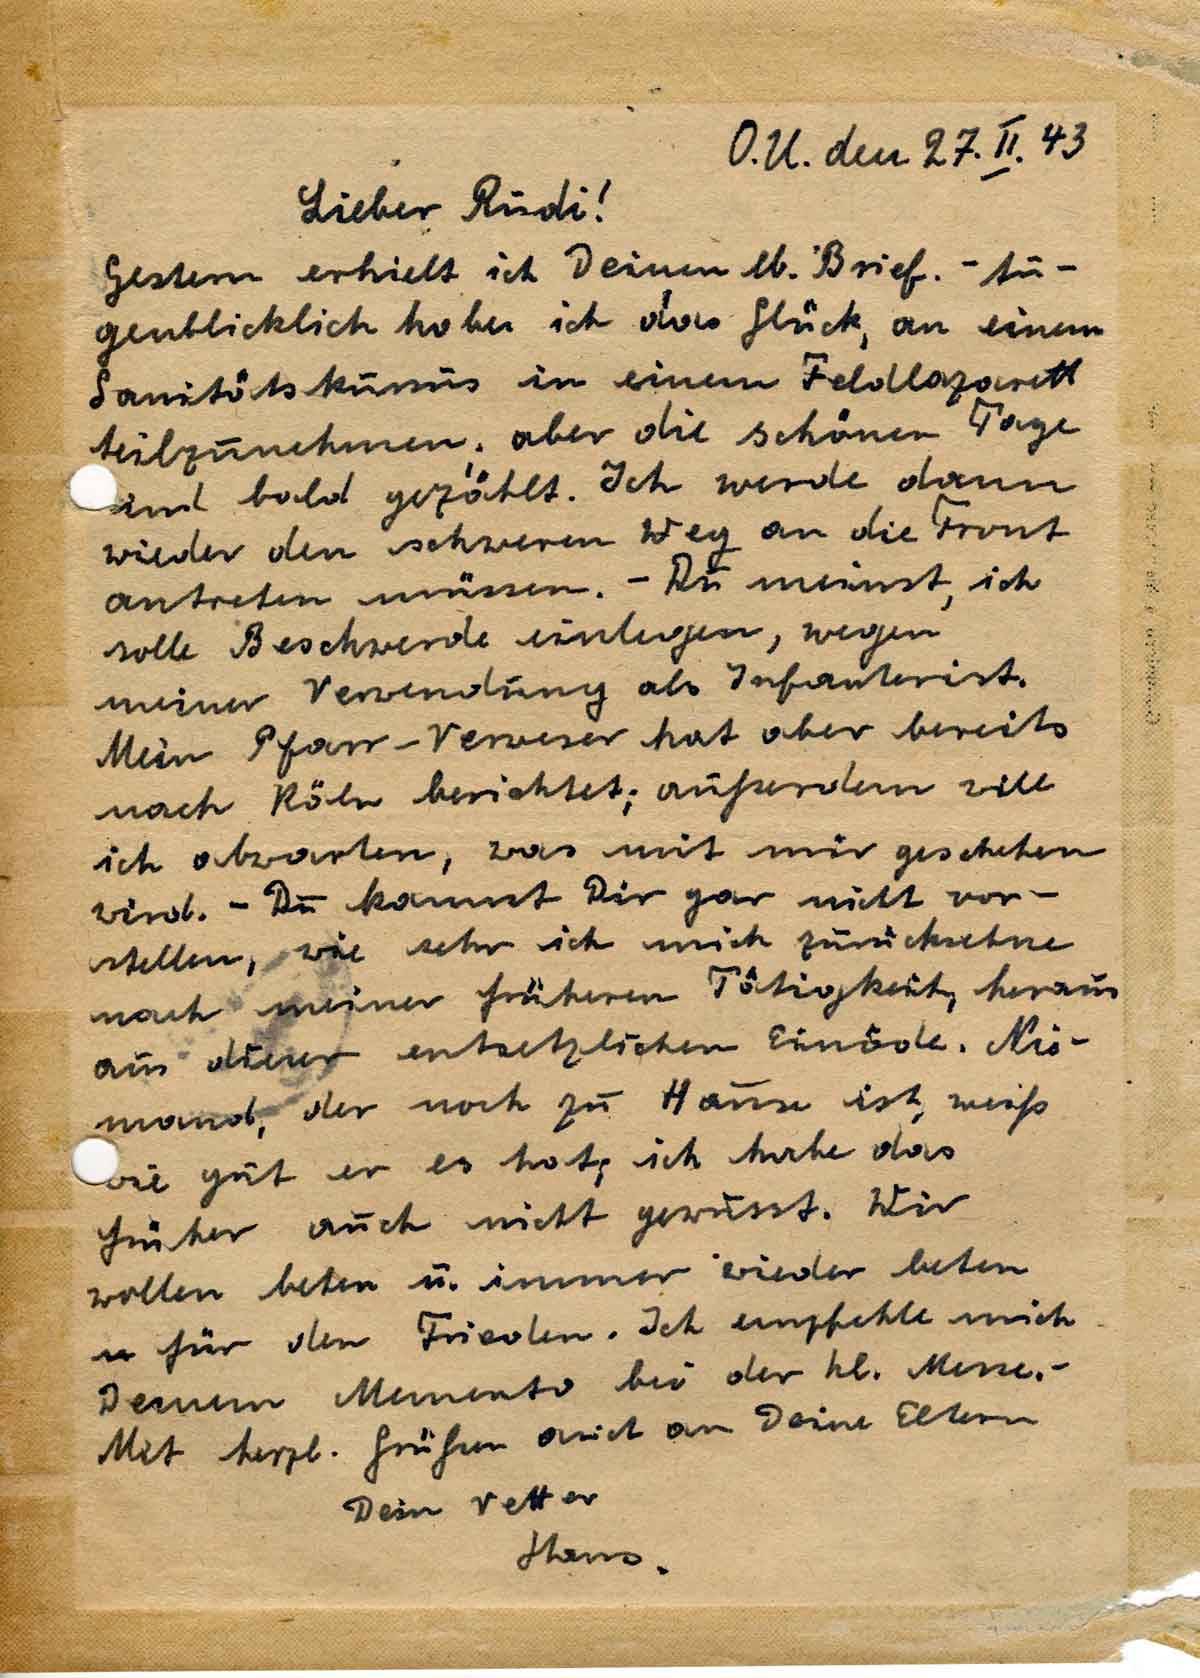 O.U. den 27.II.43
Lieber Rudi!
Gestern erhielt ich Deinen lb. Brief. - Au-
genblicklich habe ich das Glück, an einem
Sanitätskursus in einem Feldlazarett
teilzunehmen, aber die schönen Tage
sind bald gezählt. Ich werde dann
wieder den schweren Weg an die Front
antreten müssen. - Du meinst, ich
solle Beschwerde einlegen, wegen
meiner Verwendung als Infanterist.
Mein Pfarr-Verweser hat aber bereits
nach Köln berichtet; außerdem will
ich abwarten, was mit mir geschehen
wird. - Du kannst Dir gar nicht vor-
stellen, wie sehr ich mich zurücksehne
nach meiner früheren Tätigkeit, heraus
aus dieser entsetzlichen Einöde. Nie-
mand, der noch zu Hause ist, weiß
wie gut er es hat; ich habe das
früher auch nicht gewusst. Wir
wollen beten u. immer wieder beten
für den Frieden. Ich empfehle mich
Deinem Memento bei der hl. Messe.-
Mit herzl. Grüßen auch an Deine Eltern
Dein Vetter
Hans.